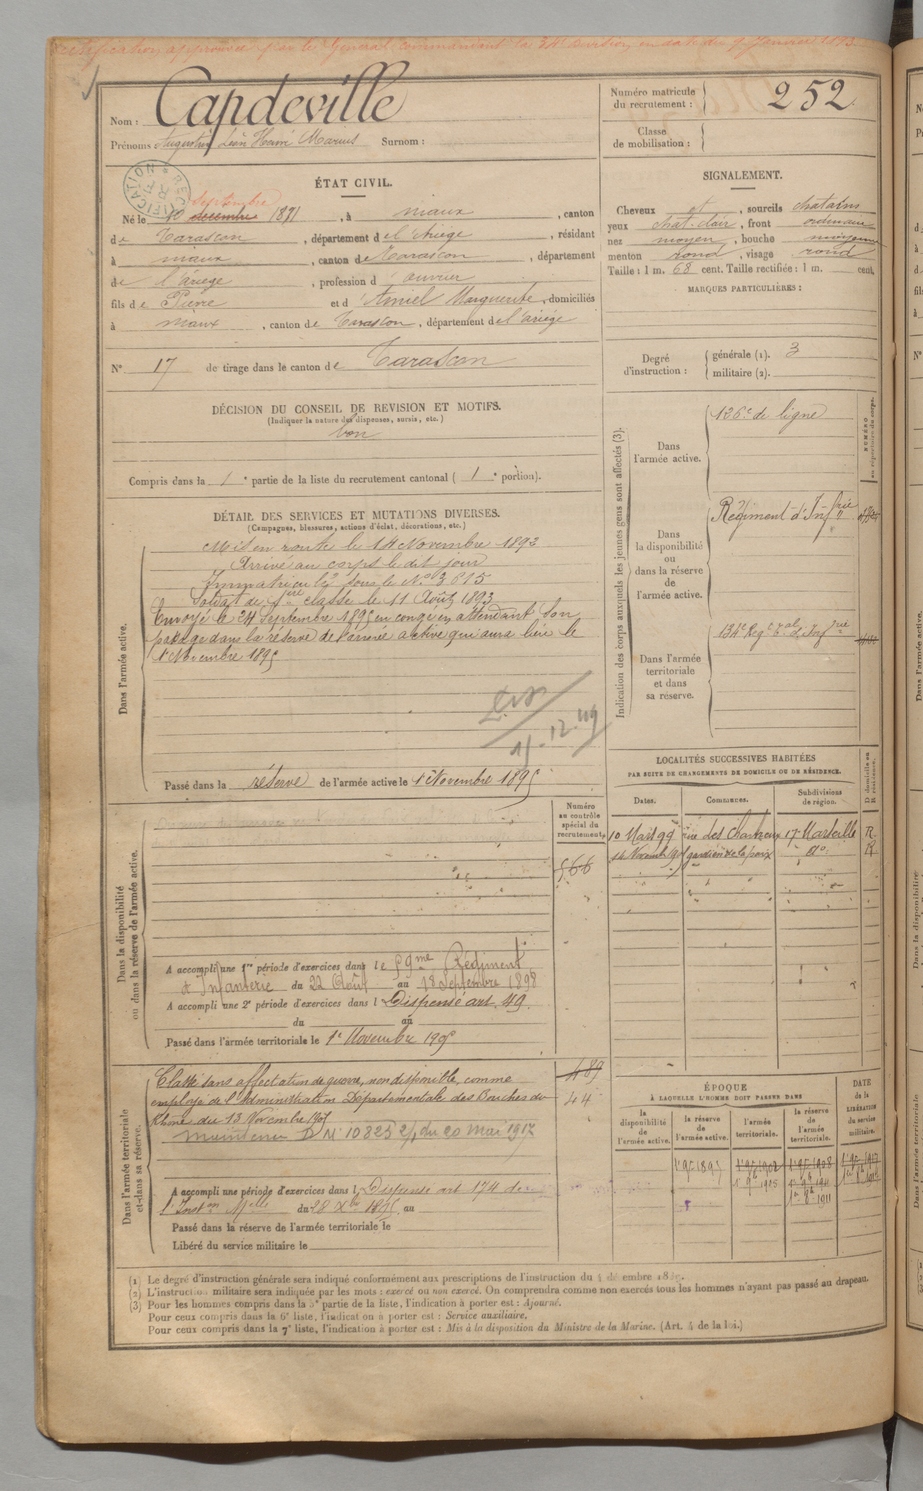 Rectification approuvée par le Général commandant la 34e Division, en date du 9 Janvier 1893
Nom : Capdeville
Prénoms : Augustin Léon Henri Marius Surnom :
Numéro matricule du recrutement : 252
Classe de mobilisation :
RECTIFICATION
ÉTAT CIVIL.
septembre
Né le 10 decembre 1871, à miaux, canton
de Tarascon, département de l'Ariège, résidant
à miaux, canton de Tarascon, département
de l'ariege, profession d' ouvrier
fils de Pierre et d' Amiel Marguerite, domiciliés
à miaux, canton de Tarascon, département de l'ariège
N° 17 de tirage dans le canton de Tarascon
SIGNALEMENT.
Cheveux et, sourcils chatains
yeux chat. clair, front ordinaire
nez moyen, bouche moyenne
menton rond, visage rond
Taille : 1 m. 68 cent. Taille rectifiée : 1 m. cent.
MARQUES PARTICULIÈRES :
Degré d'instruction :
générale (1). 3
militaire (2).
DÉCISION DU CONSEIL DE REVISION ET MOTIFS.
(Indiquer la nature des dispenses, sursis, etc.)
bon
Compris dans la 1e partie de la liste du recrutement cantonal ( 1e portion).
DÉTAIL DES SERVICES ET MUTATIONS DIVERSES.
(Campagnes, blessures, actions d'éclat, décorations, etc.)
Dans l'armée active.
Mis en route le 14 Novembre 1892
Arrivé au corps le dit jour
Immatriculé sous le N° 3615
Soldat de 1ère classe le 11 Août 1893
Envoyé le 24 Septembre 1895 en congé en attendant son
passage dans la réserve de l'armée active qui aura lieu le
1er Novembre 1895
11-12-49
Passé dans la réserve de l'armée active le 1er Novembre 1895
Indication des corps auxquels les jeunes gens sont affectés (3).
Dans l'armée active.
126e de ligne
NUMÉRO au répertoire du corps.
Dans la disponibilité ou dans la réserve de l'armée active.
Régiment d'Infrie
Dans l'armée territoriale et dans sa réserve.
134e Regt Tal d'Infrie
LOCALITÉS SUCCESSIVES HABITÉES
PAR SUITE DE CHANGEMENTS DE DOMICILE OU DE RÉSIDENCE.
Dates. Communes. Subdivisions de région. D domicile ou R résidence.
10 Mars 99 rue des Chartreux 17 Marseille R
14 Novemb 1905 gardien de la paix do R
Dans la disponibilité ou dans la réserve de l'armée active.
Numéro au contrôle spécial du recrutement.
566
A accompli une 1re période d'exercices dans le 59me Régiment
d'Infanterie du 22 Août au 18 Septembre 1898
A accompli une 2e période d'exercices dans l Dispensé art. 49
du au
Passé dans l'armée territoriale le 1er Novembre 1905
Dans l'armée territoriale et dans sa réserve.
Classé sans affectation de guerre, non disponible, comme
employé de l'Administration Départementale des Bouches du
Rhône du 13 Novembre 1905
Maintenu D. M. 10823 2/1 du 20 Mai 1917
489
44
A accompli une période d'exercices dans l Dispensé art 174 de
l'Inston Mselle du 28 Xbre 1895 au
Passé dans la réserve de l'armée territoriale le
Libéré du service militaire le
ÉPOQUE
À LAQUELLE L'HOMME DOIT PASSER DANS
la disponibilité de l'armée active. la réserve de l'armée active. l'armée territoriale. la réserve de l'armée territoriale. DATE de la LIBÉRATION du service militaire.
1er 9bre 1895 1er 9bre 1902 1er 9bre 1908 1er 9bre 1917
1er 9bre 1905 1er 9bre 1911
1er 8bre 1911
(1) Le degré d'instruction générale sera indiqué conformément aux prescriptions de l'instruction du 4 décembre
(2) L'instruction militaire sera indiquée par les mots : exercé ou non exercé. On comprendra comme non exercés tous les hommes n'ayant pas passé au drapeau.
(3) Pour les hommes compris dans la 5e partie de la liste, l'indication à porter est : Ajourné.
Pour ceux compris dans la 6e liste, l'indication à porter est : Service auxiliaire.
Pour ceux compris dans la 7e liste, l'indication à porter est : Mis à la disposition du Ministre de la Marine. (Art. 4 de la loi.)